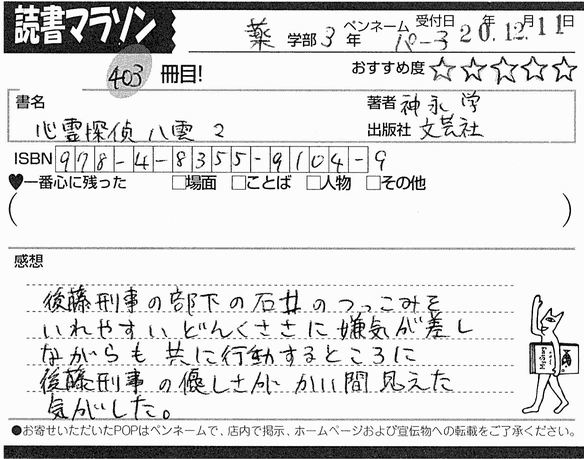 読書マラソン
薬 学部 3 年 ペンネーム パーコ 受付日 20年12月11日
403 冊目! おすすめ度 ☆☆☆☆☆
書名 著者 神永 学
心霊探偵 八雲 2 出版社 文芸社
ISBN 978-4-8355-9104-9
♥一番心に残った □場面 □ことば □人物 □その他
( )
感想
後藤刑事の部下の石井のつっこみを
いれやすいどんくささに嫌気が差し
ながらも共に行動するところに
後藤刑事の優しさがかい間見えた
気がした。
●お寄せいただいたPOPはペンネームで、店内で掲示、ホームページおよび宣伝物への転載をご了承ください。